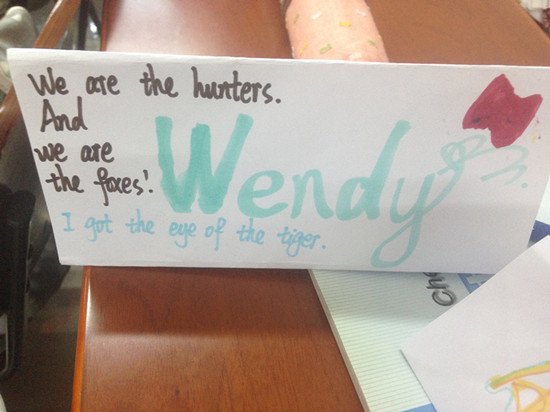 We are the hunters.
And
we are
the foxes!
Wendy
I got the eye of the tiger.